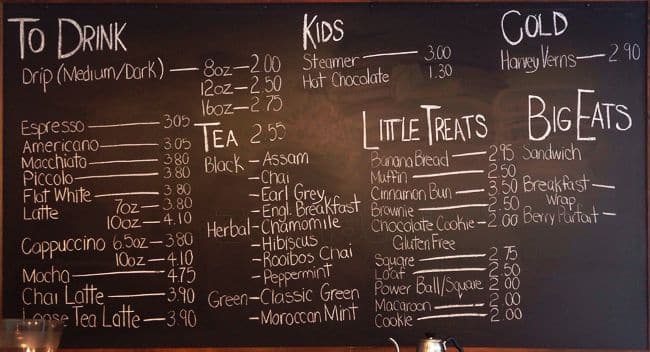 TO DRINK
Drip (Medium/Dark) — 8oz — 2.00
12oz — 2.50
16oz — 2.75
Espresso — 3.05
Americano — 3.05
Macchiato — 3.80
Piccolo — 3.80
Flat White — 3.80
Latte 7oz — 3.80
10oz — 4.10
Cappuccino 6.5oz — 3.80
10oz — 4.10
Mocha — 4.75
Chai Latte — 3.90
Loose Tea Latte — 3.90
KIDS
Steamer — 3.00
Hot Chocolate 1.30
TEA 2.55
Black — Assam
— Chai
— Earl Grey
— Engl. Breakfast
Herbal — Chamomile
— Hibiscus
— Rooibos Chai
— Peppermint
Green — Classic Green
— Moroccan Mint
COLD
Harvey Verns — 2.90
LITTLE TREATS
Banana Bread — 2.95
Muffin — 2.50
Cinnamon Bun — 3.50
Brownie — 2.50
Chocolate Cookie — 2.00
Gluten Free
Square — 2.75
Loaf — 2.50
Power Ball/Square 2.00
Macaroon — 2.00
Cookie — 2.00
BIG EATS
Sandwich
Breakfast —
Wrap
Berry Parfait —